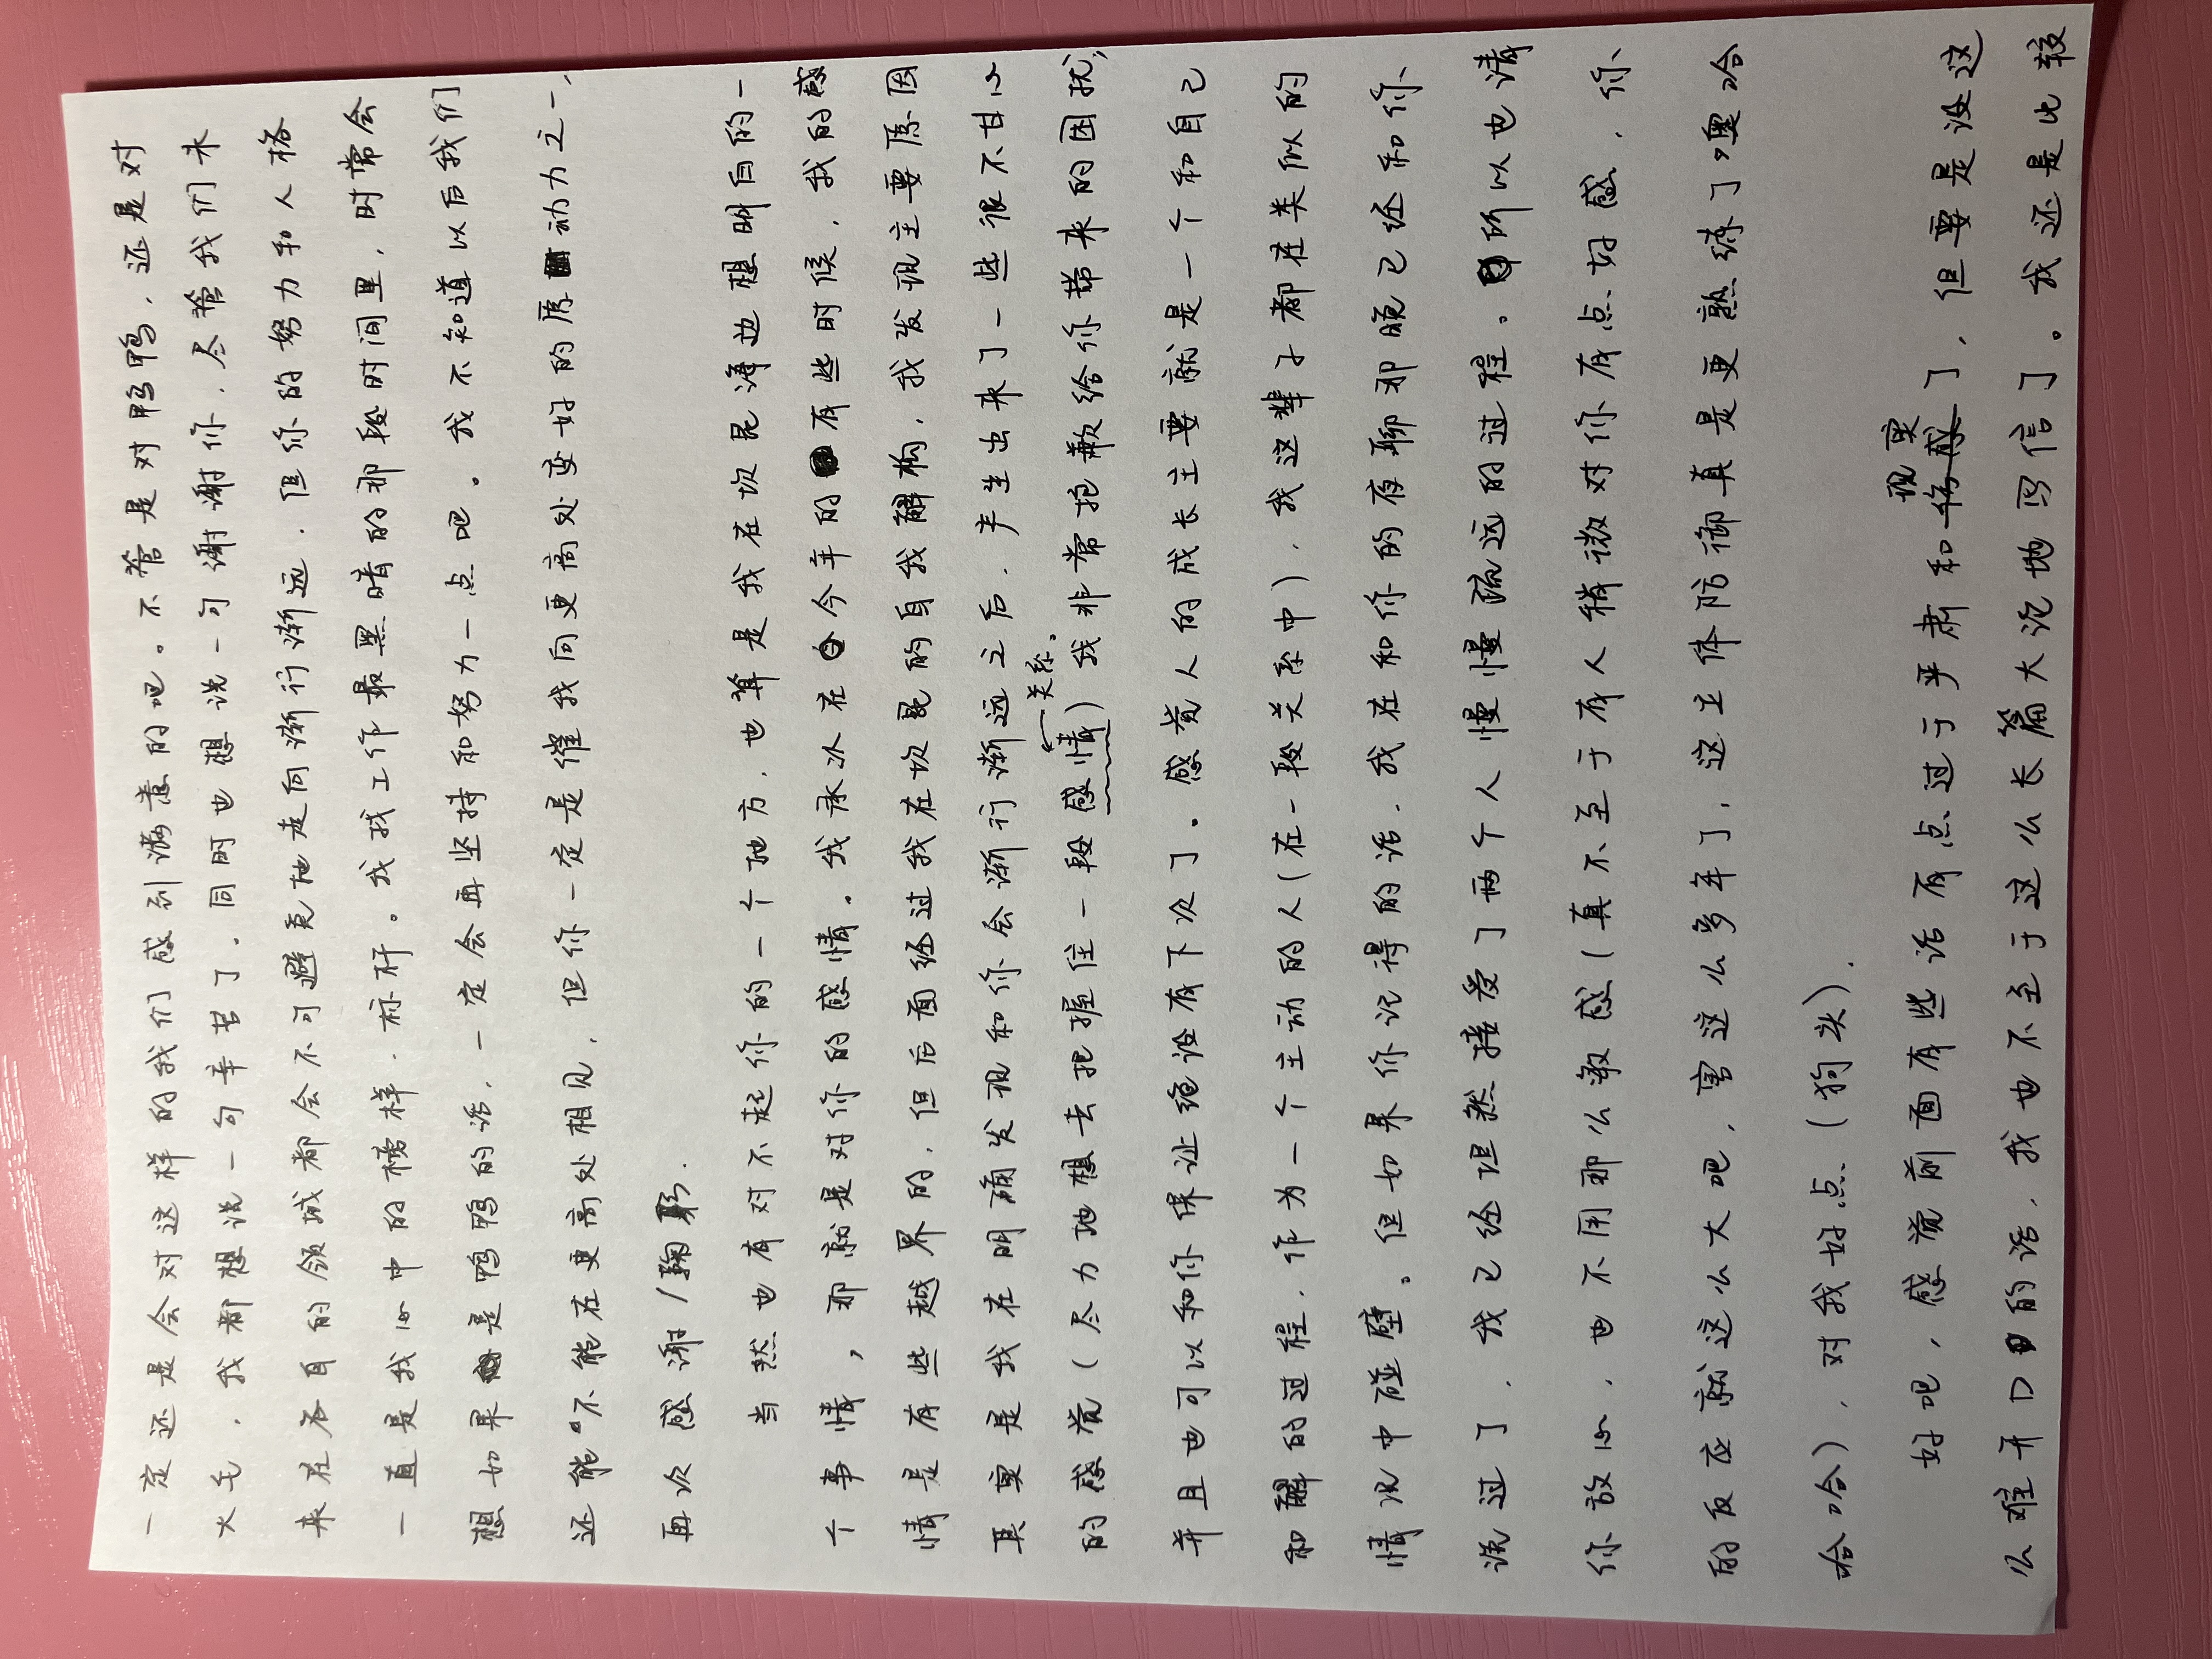 一定还是会对这样的我们感到满意的吧。不管是对鸭鸭，还是对
大毛，我都想说一句辛苦了。同时也想说一句谢谢你，尽管我们未
来在各自的领域都会不可避免地走向渐行渐远，但你的努力和人格
一直是我心中的榜样、标杆。我找工作最黑暗的那段时间里，时常会
想如果是鸭鸭的话，一定会再坚持和努力一点吧。我不知道以后我们
还能不能在更高处相见，但你一定是催我向更高处变好的原动力之一，
再次感谢/鞠躬.
当然也有对不起你的一个地方，也算是我在坎昆海边想明白的一
个事情，那就是对你的感情。我承认在今年的有些时候，我的感
情是有些越界的，但后面经过我在坎昆的自我解构，我发现主要原因
其实是我在明确发现和你会渐行渐远之后，产生出来了一些很不甘心
←关系。
的感觉（尽力地想去把握住一段感情）我非常抱歉给你带来的困扰，
并且也可以和你保证绝没有下次了。感觉人的成长主要就是一个和自己
和解的过程，作为一个主动的人（在一段关系中），我这辈子都在类似的
情况中碰壁。但如果你记得的话，我在和你的夜聊那晚已经和你
说过了，我已经坦然接受了两个人慢慢疏远的过程。所以也请
你放心，也不用那么敏感（真不至于有人稍微对你有点好感，你
的反应就这么大吧，害这么多年了，这主体防御真是更熟练了噢哈
哈哈），对我好点（狗头）.
现实
好吧，感觉前面有些话有点过于严肃和伤感了，但要是没这
么难开口的话，我也不至于这么长篇大论地写信了。我还是比较